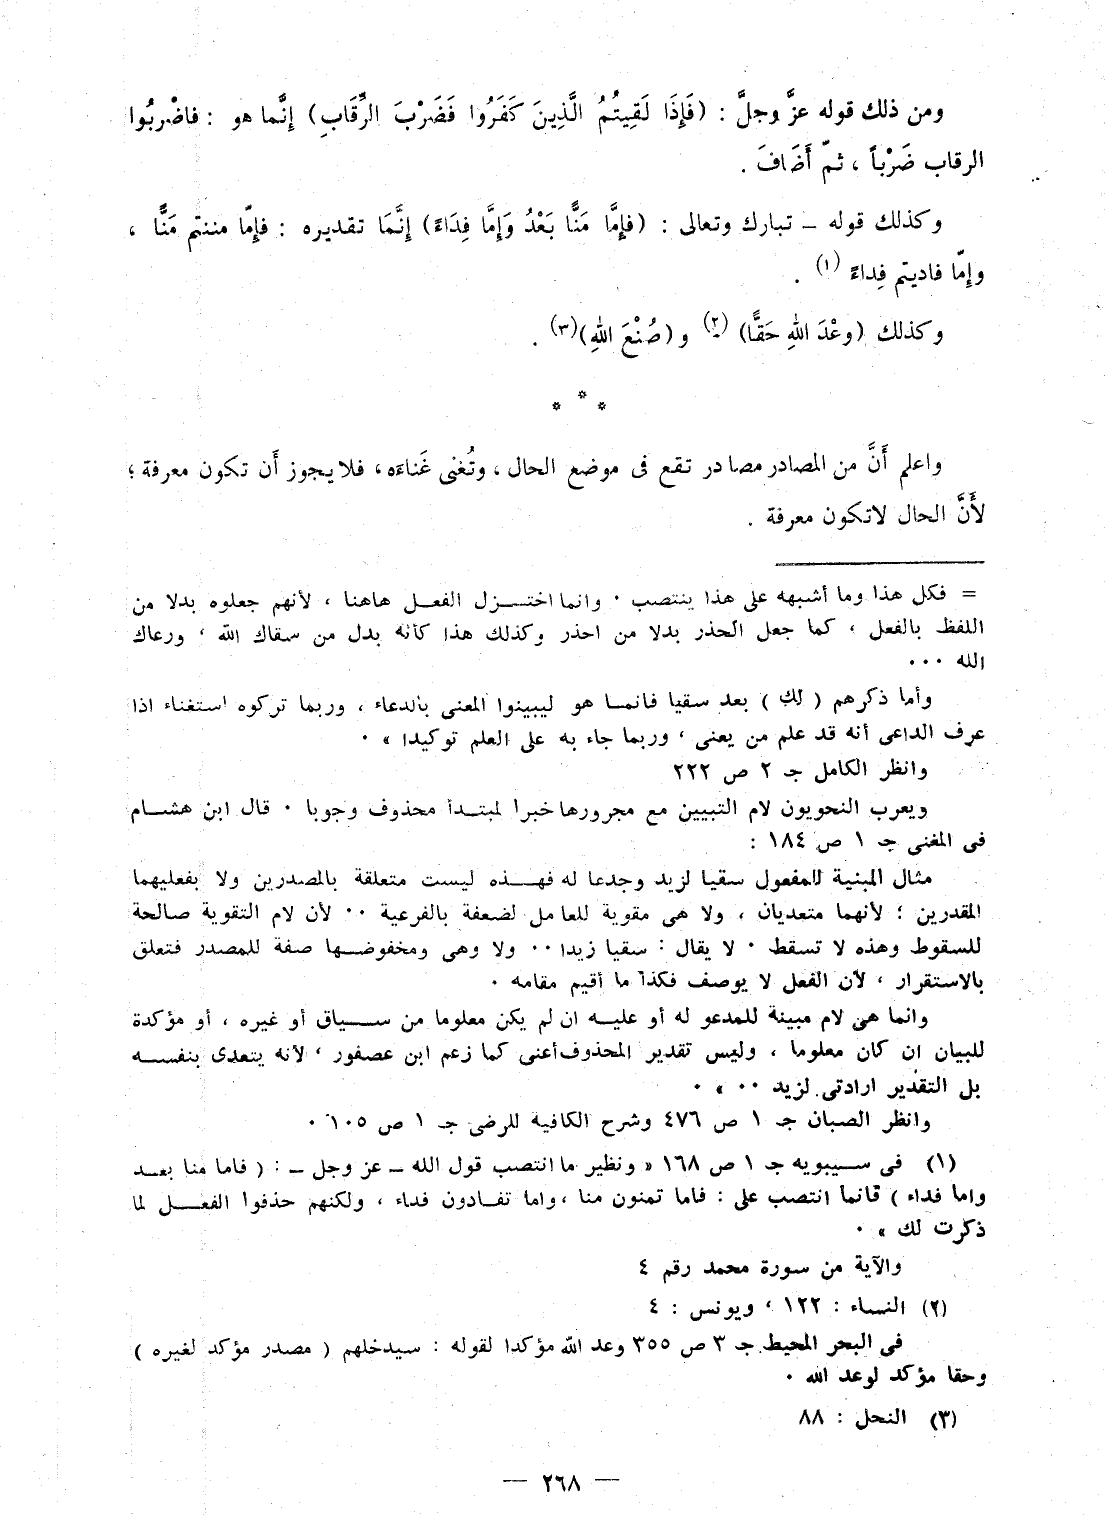 ومن ذلك قوله عزَّ وجلَّ : (فَإِذَا لَقِيتُمُ الَّذِينَ كَفَرُوا فَضَرْبَ الرِّقَابِ) إنَّما هو : فاضْربُوا
الرقاب ضَرْباً ، ثمّ أَضَافَ .
وكذلك قوله – تبارك وتعالى : (فَإِمَّا مَنًّا بَعْدُ وَإِمَّا فِدَاءً) إنَّمَا تقديره : فإمّا مننتم مَنًّا ،
وإمّا فاديتم فِداءً (١) .
وكذلك (وعْدَ اللهِ حَقًّا) (٢) و (صُنْعَ اللهِ)(٣) .
* * *
واعلم أَنَّ من المصادر مصادر تقع فى موضع الحال ، وتُغنى غَناءَه ، فلا يجوز أَن تكون معرفة ؛
لأَنَّ الحال لاتكون معرفة .
= فكل هذا وما أشبهه على هذا ينتصب . وانما اختزل الفعل هاهنا ، لأنهم جعلوه بدلا من
اللفظ بالفعل ، كما جعل الحذر بدلا من احذر وكذلك هذا كأنه بدل من سقاك الله ، ورعاك
الله ...
وأما ذكرهم ( لك ) بعد سقيا فانما هو ليبينوا المعنى بالدعاء ، وربما تركوه استغناء اذا
عرف الداعى أنه قد علم من يعنى ، وربما جاء به على العلم توكيدا » .
وانظر الكامل جـ ٢ ص ٢٢٢
ويعرب النحويون لام التبيين مع مجرورها خبرا لمبتدأ محذوف وجوبا . قال ابن هشام
فى المغنى جـ ١ ص ١٨٤ :
مثال المبنية للمفعول سقيا لزيد وجدعا له فهذه ليست متعلقة بالمصدرين ولا بفعليهما
المقدرين ؛ لأنهما متعديان ، ولا هى مقوية للعامل لضعفة بالفرعية .. لأن لام التقوية صالحة
للسقوط وهذه لا تسقط . لا يقال : سقيا زيدا .. ولا وهى ومخفوضها صفة للمصدر فتعلق
بالاستقرار ، لأن الفعل لا يوصف فكذا ما أقيم مقامه .
وانما هى لام مبينة للمدعو له أو عليه ان لم يكن معلوما من سياق أو غيره ، أو مؤكدة
للبيان ان كان معلوما ، وليس تقدير المحذوف أعنى كما زعم ابن عصفور ، لأنه يتعدى بنفسه
بل التقدير ارادتى لزيد .. » .
وانظر الصبان جـ ١ ص ٤٧٦ وشرح الكافية للرضى جـ ١ ص ١٠٥ .
(١) فى سيبويه جـ ١ ص ١٦٨ « ونظير ما انتصب قول الله – عز وجل – : ( فاما منا بعد
واما فداء ) فانما انتصب على : فاما تمنون منا ، واما تفادون فداء ، ولكنهم حذفوا الفعل لما
ذكرت لك » .
والآية من سورة محمد رقم ٤
(٢) النساء : ١٢٢ ، ويونس : ٤
فى البحر المحيط جـ ٣ ص ٣٥٥ وعد الله مؤكدا لقوله : سيدخلهم ( مصدر مؤكد لغيره )
وحقا مؤكد لوعد الله .
(٣) النحل : ٨٨
— ٢٦٨ —